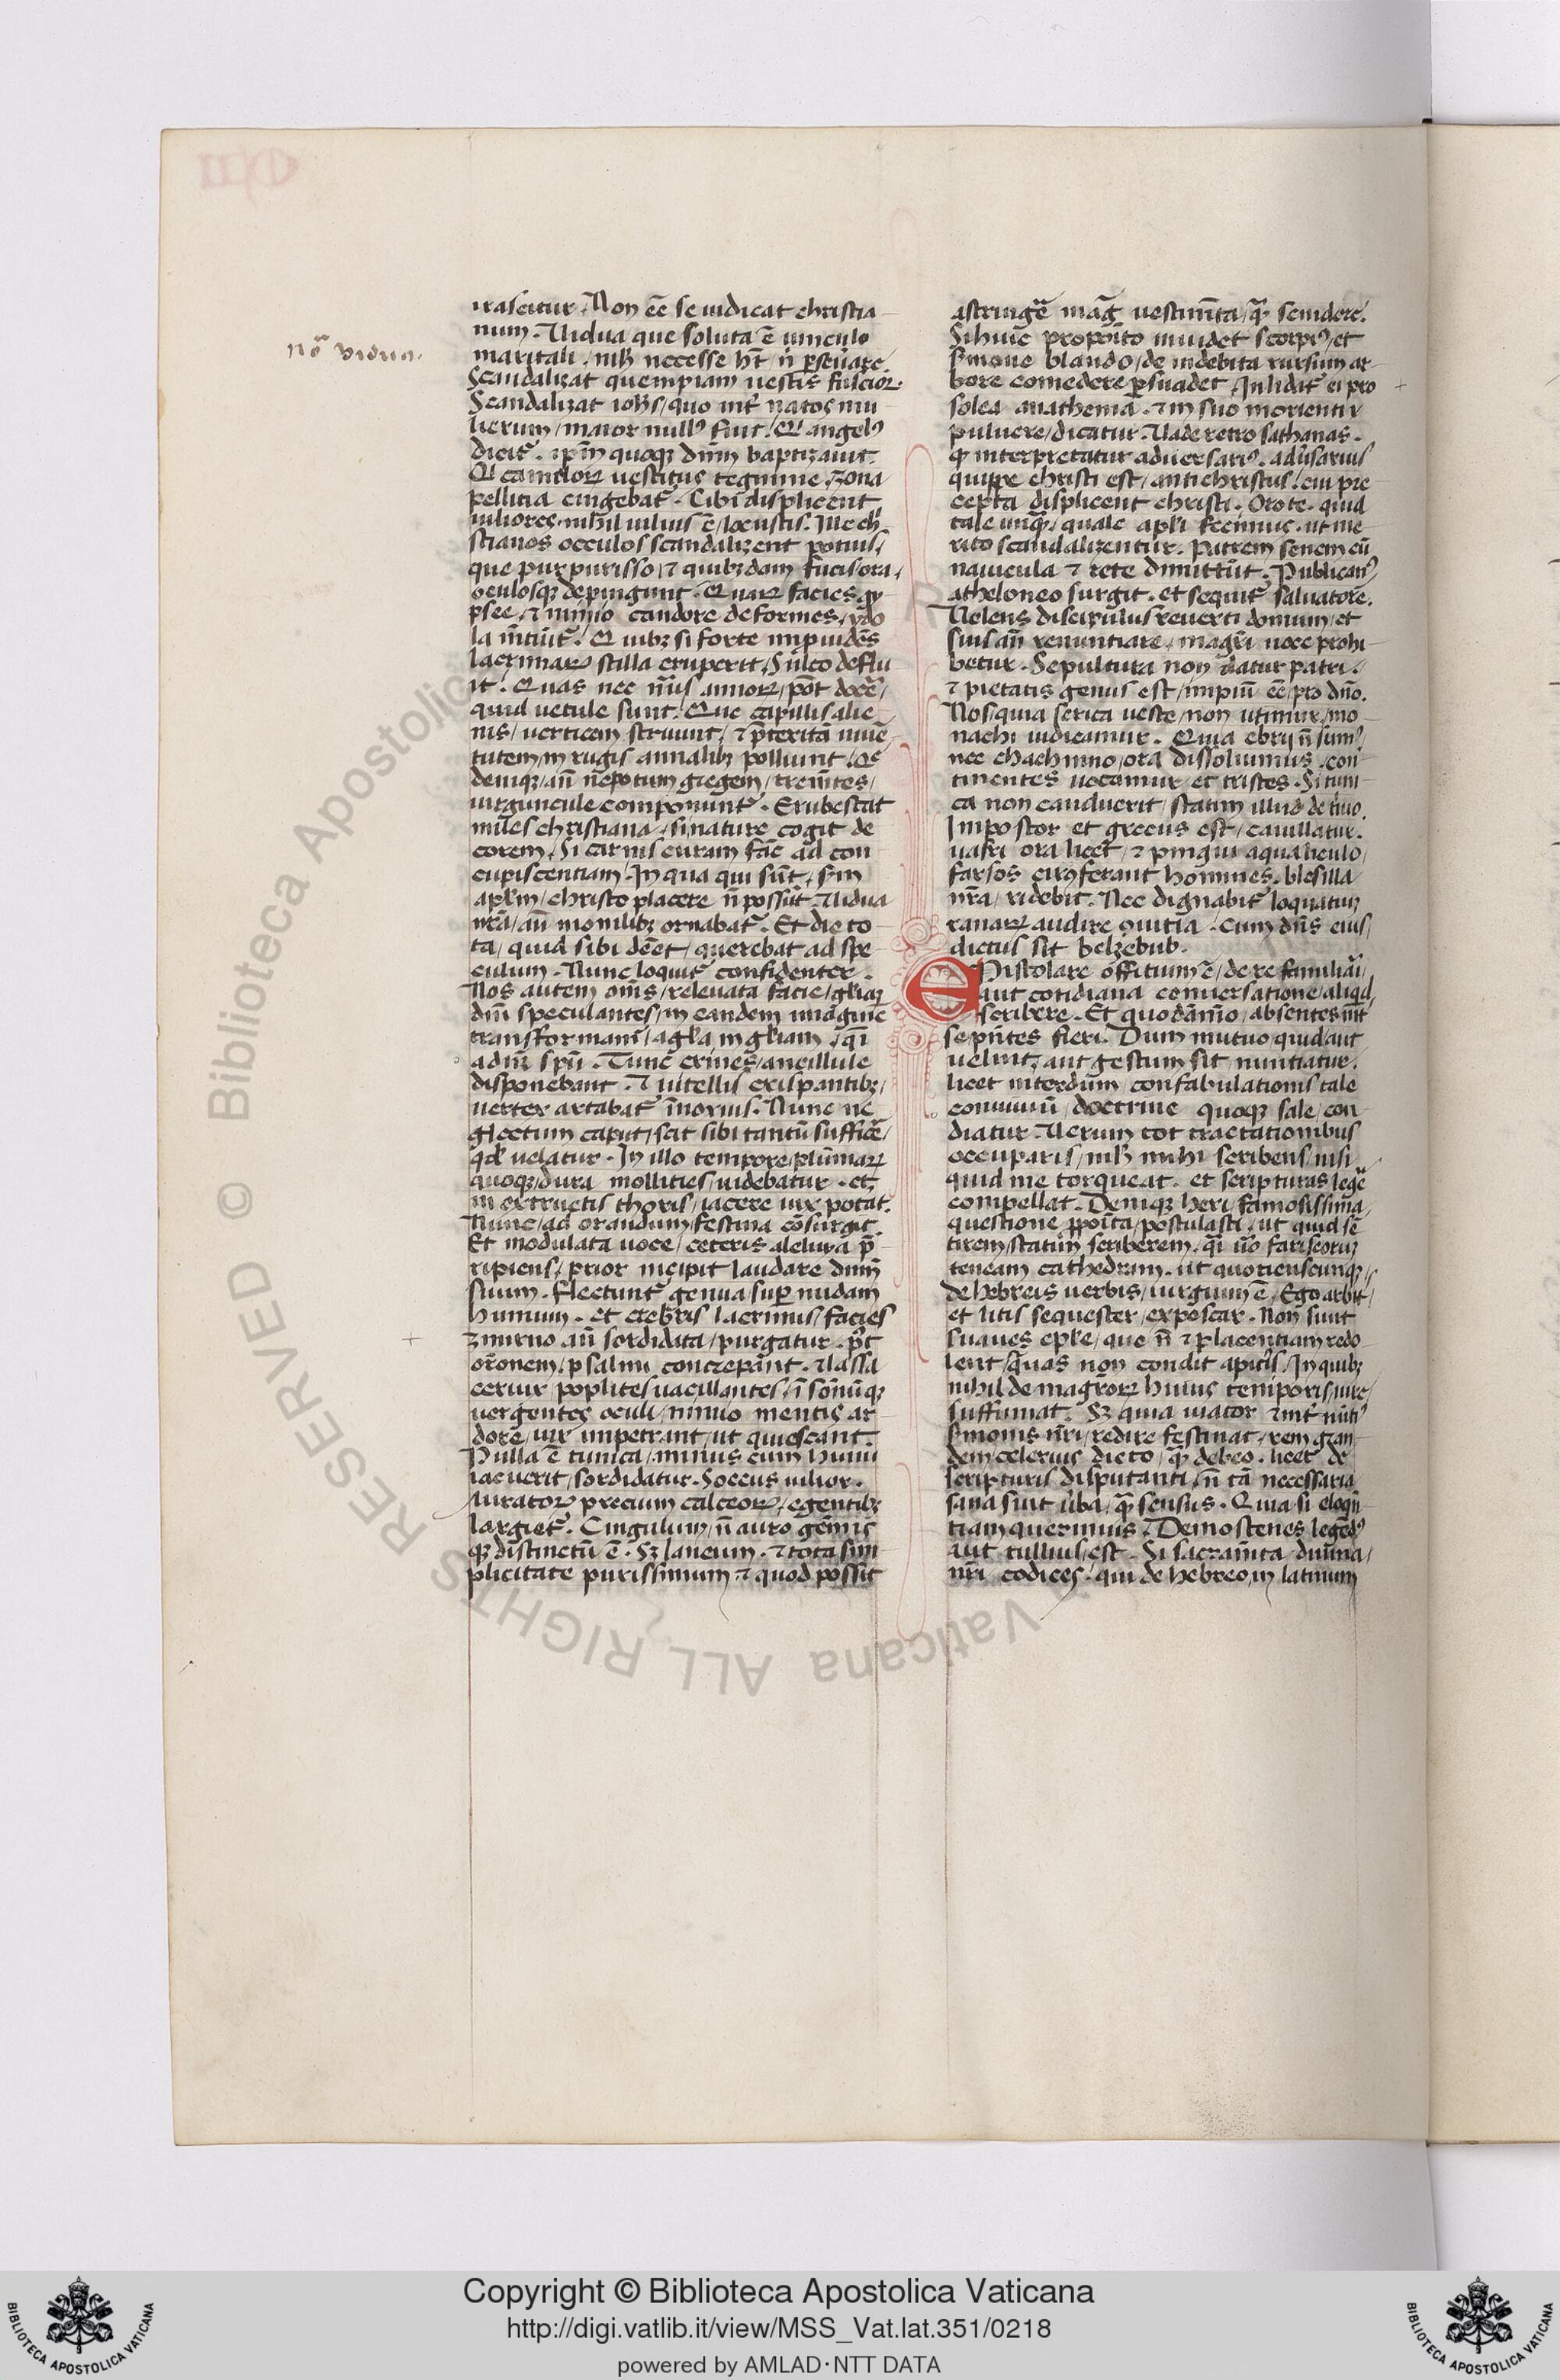 nō vidua.
irascitur. Non ēe se iudicat christia
num. Uidua que soluta ē uinculo
maritali. nihꝫ necesse ht̄ n̄ ꝑseuāre.
Scandalizat quempiam uestis fulcior.
Scandalizat ioħs/ quo int̄ natos mu
lierum/ maior null᷒ fuit. Qui angel᷒
dicit᷑. ip̄m quoqꝫ dn̄m baptizauit.
Qui camelorꝝ uestitus tegmine, zona
pellitia cingebat᷑. Cibi displicent
uiliores. nihil uilius ē/ locustis. Ille ch̄
stianos occulos scandalizent potius/
que purpurisso/ ⁊ quibꝫdam fucis/ ora,
oculosqꝫ depingunt. Quarꝝ facies gy
psee, ⁊ nimio candore deformes, ydo
la m̄tiūt᷑. Quibꝫ si forte īmpuidēs
lacrimarꝝ stilla eruperit, sulco deflu
it. Quas nec nūs annorꝝ/ pōt docē,
quid uetule sunt. Que capillis alie
nis/ uerticem struunt, ⁊ p̄teritā iuuē
tutem/ in rugis annalibꝫ poliunt. Qe
deniqꝫ/ an̄ nepotum gregem/ trem̄tes/
uirguncule componunt᷑. Erubescat
mulies christiana, si nature cogit de
corem, Si carnis curam fac̄ ad con
cupiscentiam. In qua qui sūt, s̄m
apl̄m/ christo placere n̄ possūt. Uidua
nr̄a, an̄ monilibꝫ ornabat᷑. Et die to
ta/ quid sibi dēet/ querebat ad spe
culum. Nunc loquit᷑ confidenter.
Nos autem om̄s/ reuelata facie/ gl̄iaꝝ
dn̄i speculantes/ in eandem imagine
transformam᷑/ a gl̄a in gl̄iam, qi
a dn̄i sp̄u. Tunc crines/ ancillule
disponebant. ⁊ uitellis crispantibꝫ/
uertex artabat᷑ īnoxius. Nunc ne
glectum caput/ scit sibi tantū sufficē/
qd̄ uelatur. In illo tempore/ plumarꝝ
quoqꝫ/ dura mollities/ uidebatur. et
in extructis thoris/ iacere uix potat.
Nunc/ ad orandum/ festina cōsurgit.
Et modulata uoce/ ceteris aleluya p̄
ripiens/ prior incipit laudare dn̄m
suum. Flectunt᷑ genua/ suꝑ nudam
humum. et crebris lacrimis/ facies
zmirno an̄ sordidata/ purgatur. pꝰt
or̄onem/ psalmi concrepant. ⁊ lassa
ceruix/ poplites uacillantes/ ī sōnūqꝫ
uergentes oculi/ nimio mentis ar
dore, uix impetrant/ ut quiescant.
Pulla ē tunica/ minus cum humi
iacuerit/ sordidatur. Soccus uilior.
auratorꝝ precium calceorꝝ/ egentibꝫ
largiet᷑. Cingulum/ n̄ auro gēmis
qꝫ distinctū ē. Sꝫ laneum. ⁊ tota sim
plicitate purissimum ⁊ quod possit
astringē maḡ uestim̄ta/ qᷓ scindere.
Si huic propoīto inuidet scorpi᷒, et
smone blando/ de indebita rursum ar
bore comedere ꝑsuadet. Inlidat᷑ ei pro
solea anathema. ⁊ in suo morienti
puluere/ dicatur. Uade retro sathanas.
qd̄ interpretatur aduersari᷒. adūsarius
quippe christi est/ antichristus. cui pre
cepta displicent christi. Oro te. quid
tale unqᷓ, quale apl̄i fecimus. ut me
rito scandalizentur. Patrem senem cū
nauicula ⁊ rete dimittūt. Publican᷒
atheloneo surgit. et sequit᷑ saluatorē.
Uolens discipulus reuerti domum/ et
suis an̄ renuntiare, magr̄i uoce prohi
betur. Sepultura non datur patri.
⁊ pietatis genus est/ impiū ēe/ pro dn̄o.
Nos/ quia serica ueste/ non utimur/ mo
nachi iudicamur. Quia ebrij n̄ sum᷒/
nec chachinno/ ora dissoluimus, con
tinentes uocamur et tristes. Si tuni
ca non canduerit/ statim illud de triuio.
Impostor et grecus est, cauillatur.
uafri ora licet/ ⁊ pingui aqualiculo/
farsos circuferant homines. blesilla
nr̄a/ ridebit. Nec dignabit᷑ loquatiū
ranarꝝ audire quitia. Cum dn̄s eius/
dictus sit belzebub.
EPistolare offitium ē/ de re familiāi,
aut cotidiana conuersatione/ aliqd,
scribere. Et quodāmo/ absentes īnt̄
se pn̄tes fieri. Dum mutuo quid aut
uelint, aut gestum sit nuntiatur.
licet interdum/ confabulationis tale
conuiuiū/ doctrine quoqꝫ sale/ con
diatur. Uerum tot tractationibus
occuparis/ nihꝫ mihi scribens/ nisi
quid me torqueat. et scripturas legē
compellat. Deniqꝫ heri/ famosissima,
questione ꝓpoīta/ postulasti. ut quid sē
tirem/ statim scriberem. qi uo fariseorū
teneam cathedram. ut quotienscunqꝫ
de hebreis uerbis/ iurgium ē, Ego arbit̄
et litis sequester/ exposcar. Non sunt
suaues epl̄e/ que n̄ ⁊ placentiam redo
lent/ quas non condit apitīs/ In quibꝫ
nihil de magr̄orꝝ huius temporis/ iure,
suffumat. Sꝫ quia uiator ⁊ int̄ nūti᷒
smonis nr̄i/ redire festinat, rem gran
dem/ celerius dicto/ qᷓ debeo. licet de
scripturis disputanti/ n̄ tā necessaria
sana sint ūba/ qᷓ sensus. Quia si eloqn̄
tiam querimus. Demostenes legēd᷒
aut tullius est. Si sacram̄ta diuina/
nr̄i codices. qui de hebreo in latinum
Copyright © Biblioteca Apostolica Vaticana
http://digi.vatlib.it/view/MSS_Vat.lat.351/0218
powered by AMLAD·NTT DATA
BIBLIOTECA APOSTOLICA VATICANA
BIBLIOTECA APOSTOLICA VATICANA
© Biblioteca Apostolica Vaticana ALL RIGHTS RESERVED